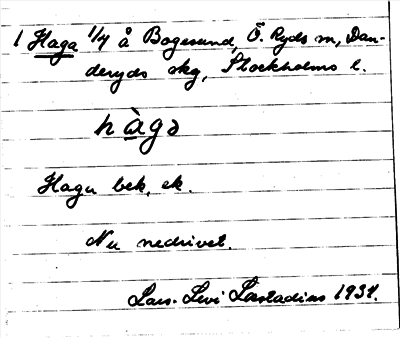 1 Haga 1/4 å Bogesund, Ö. Ryds sn, Dan-
deryds skg, Stockholms l.
hàgə
Haga bek. ek.
Nu nedrivet.
Lars-Levi Læstadius 1937.